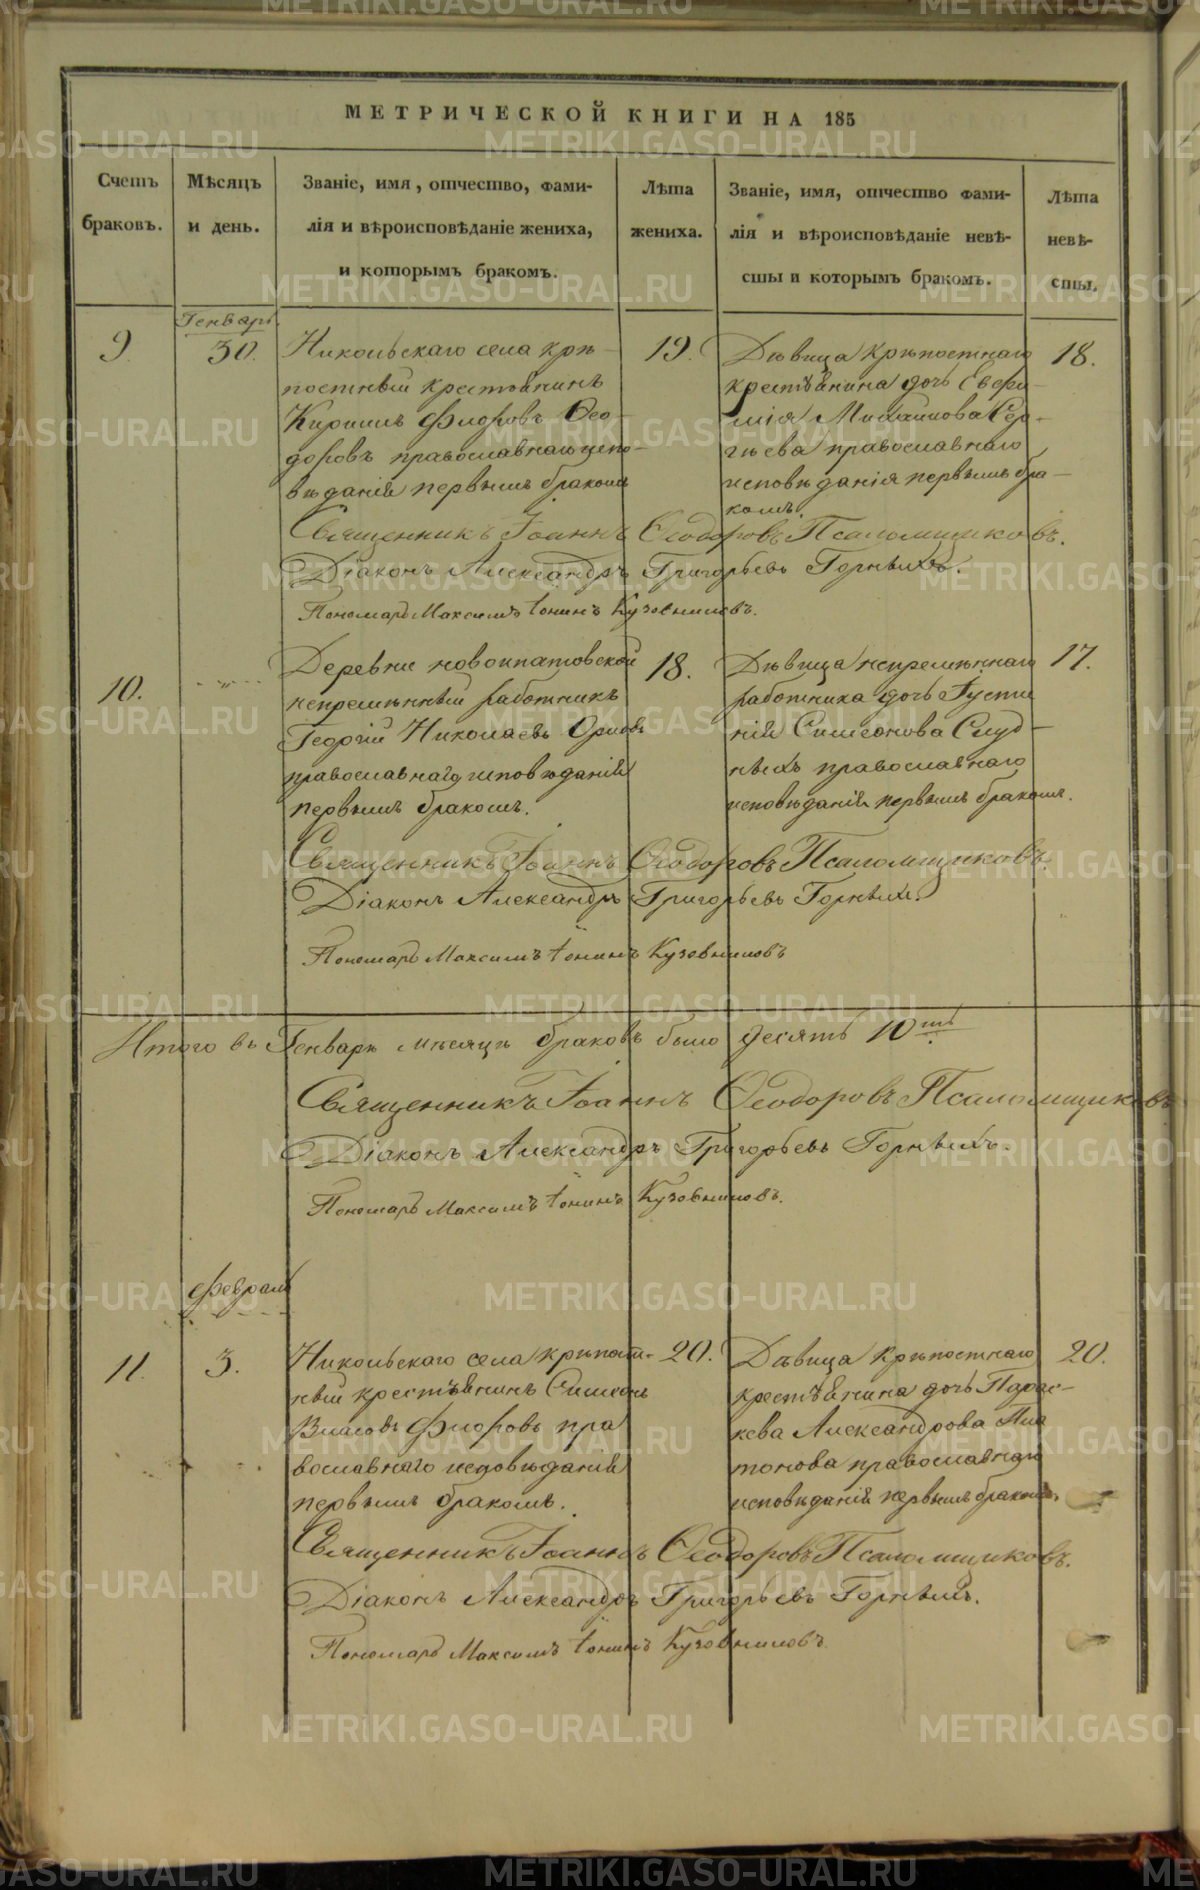 МЕТРИЧЕСКОЙ КНИГИ НА 185
Счетъ браковъ.
Мѣсяцъ и день.
Званіе, имя, отчество, фами-
лія и вѣроисповѣданіе жениха,
и которымъ бракомъ.
Лѣта
жениха.
Званіе, имя, отчество фами-
лія и вѣроисповѣданіе невѣ-
сты и которымъ бракомъ.
Лѣта
невѣ-
сты.
Генварь
9.
30.
Никольскаго села крѣ-
постный крестьянинъ
Кирилъ Флоровъ Ѳео-
доровъ православнаго испо-
вѣданія первымъ бракомъ
19.
Дѣвица крѣпостнаго
крестьянина дочь Евфи-
мія Михаилова Сер-
гѣева православнаго
исповѣданія первымъ бра-
комъ.
18.
Священникъ Іоаннъ Ѳеодоровъ Псаломщиковъ.
Діаконъ Александръ Григорьевъ Горныхъ.
Пономарь Максимъ Іонинъ Кузовниковъ.
10.
Деревни новоипатовской
непремѣнный работникъ
Георгій Николаевъ Орловъ
православнаго исповѣданія
первымъ бракомъ.
18.
Дѣвица непремѣннаго
работника дочь Густи
нія Симеонова Слуд-
ныхъ православнаго
исповѣданія первымъ бракомъ.
17.
Священникъ Іоаннъ Ѳеодоровъ Псаломщиковъ.
Діаконъ Александръ Григорьевъ Горныхъ.
Пономарь Максимъ Іонинъ Кузовниковъ
Итого въ Генварѣ мѣсяцѣ браковъ было десять 10ть
Священникъ Іоаннъ Ѳеодоровъ Псаломщиковъ
Діаконъ Александръ Григорьевъ Горныхъ.
Пономарь Максимъ Іонинъ Кузовниковъ.
Февраль
11.
3.
Никольскаго села крѣпост-
ный крестьянинъ Симеонъ
Власовъ Флоровъ пра
вославнаго исповѣданія
первымъ бракомъ.
20.
Дѣвица крѣпостнаго
крестьянина дочь Парас-
кева Александрова Пла
тонова православнаго
исповѣданія первымъ бракомъ.
20.
Священникъ Іоаннъ Ѳеодоровъ Псаломщиковъ.
Діаконъ Александръ Григорьевъ Горныхъ.
Пономарь Максимъ Іонинъ Кузовниковъ
METRIKI.GASO-URAL.RU